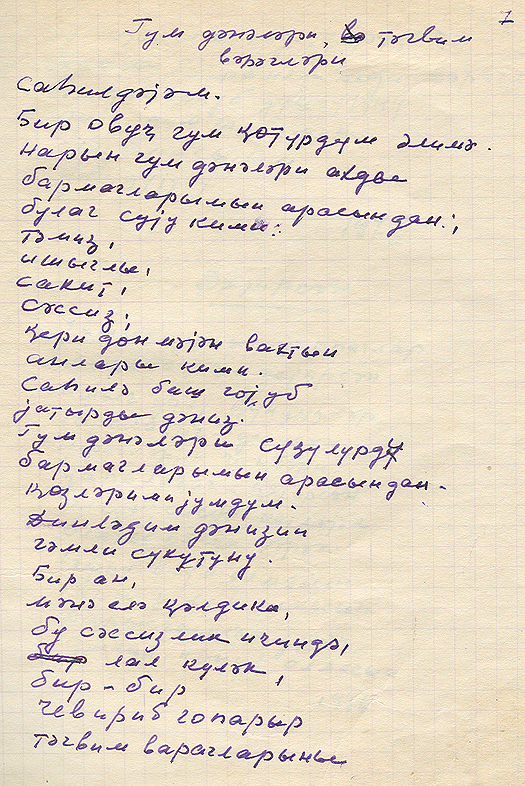 7
Гум дәнәләри, тәгвим
вәрәгләри
Саһилдәјәм.
Бир овуҹ гум ҝөтүрдүм әлимә.
Нарын гум дәнәләри ахды
бармагларымын арасындан.,
булаг сују кими:
тәмиз,
ишыглы,
сакит,
сәссиз;
ҝери дөнмәјән вахтын
анлары кими.
Саһилә баш гојуб
јатырды дәниз.
Гум дәнәләри сүзүлүрдү
бармагларымын арасындан.
Ҝөзләрими јумдум.
Динләдим дәнизин
гәмли сүкутуну.
Бир ан,
мәнә елә ҝәлдики,
бу сәссизлик ичиндә,
лал күләк,
бир-бир
чевириб гопарыр
тәгвим варагларыны